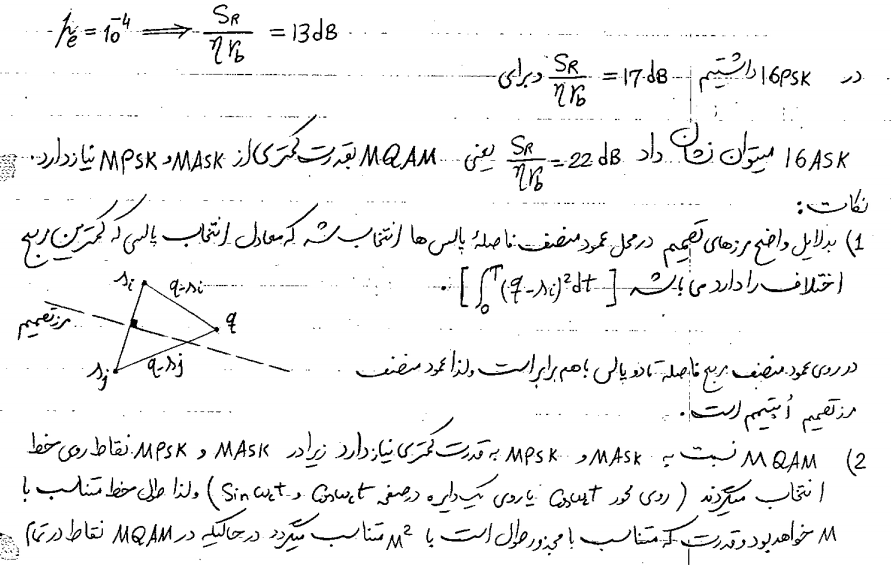 Pe = 10^-4 ⟹ S_R / η r_b = 13 dB
در 16PSK داشتیم S_R / η r_b = 17 dB و برای
16 ASK میتوان نشان داد S_R / η r_b = 22 dB یعنی MQAM بقدرت کمتری از MASK و MPSK نیاز دارد.
نکات:
1) بدلایل واضح مرزهای تصمیم در محل عمود منصف فاصلهٔ پالس ها انتخاب شد که معادل انتخاب پالسی که کمترین مربع
اختلاف را دارد می باشد [∫₀ᵀ (q-si)² dt].
si q-si q
مرز تصمیم
sj q-sj
در روی عمود منصف مربع فاصله تا دو پالس باهم برابر است ولذا عمود منصف
مرز تصمیم اُپتیمم است.
2) MQAM نسبت به MASK و MPSK به قدرت کمتری نیاز دارد زیرا در MASK و MPSK نقاط روی خط
انتخاب میگردند (روی محور Cosωct یا روی یک دایره در صفحه Cosωct و Sinωct) ولذا طول خط متناسب با
M خواهد بود و قدرت که متناسب با مجذور طول است با M² متناسب میگردد در حالیکه در MQAM نقاط در تمام